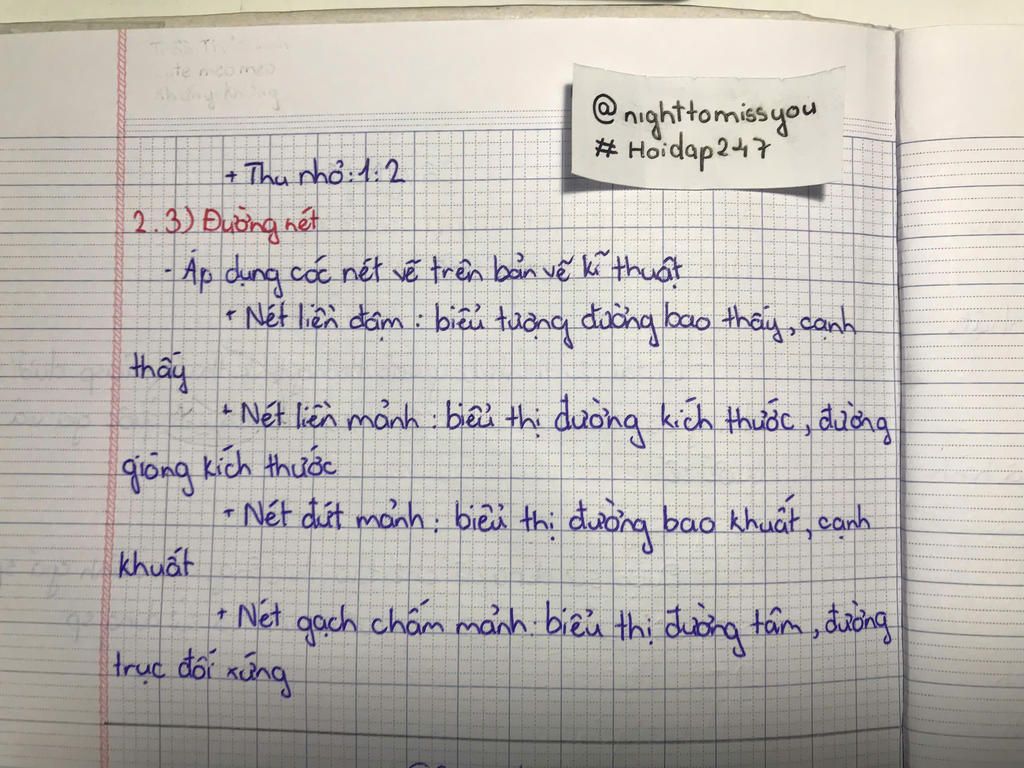 @nighttomissyou
# Hoidap247
+ Thu nhỏ: 1:2
2.3) Đường nét
- Áp dụng các nét vẽ trên bản vẽ kĩ thuật
+ Nét liền đậm: biểu tượng đường bao thấy, cạnh
thấy
+ Nét liền mảnh: biểu thị đường kích thước, đường
gióng kích thước
+ Nét đứt mảnh: biểu thị đường bao khuất, cạnh
khuất
+ Nét gạch chấm mảnh: biểu thị đường tâm, đường
trục đối xứng